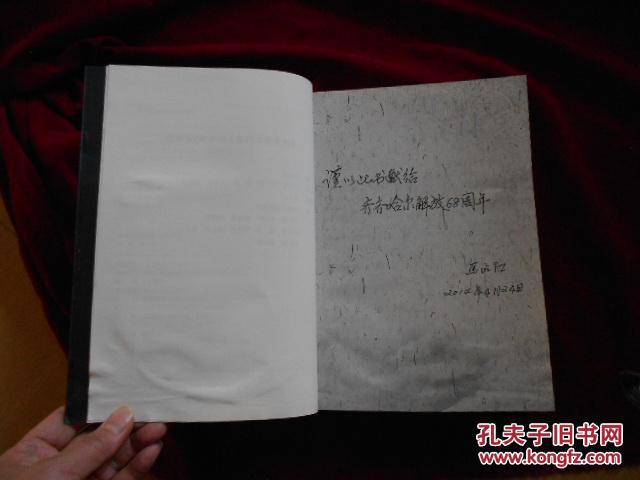 谨以此书献给
齐齐哈尔解放68周年
2014年4月24日
孔夫子旧书网
www.kongfz.com